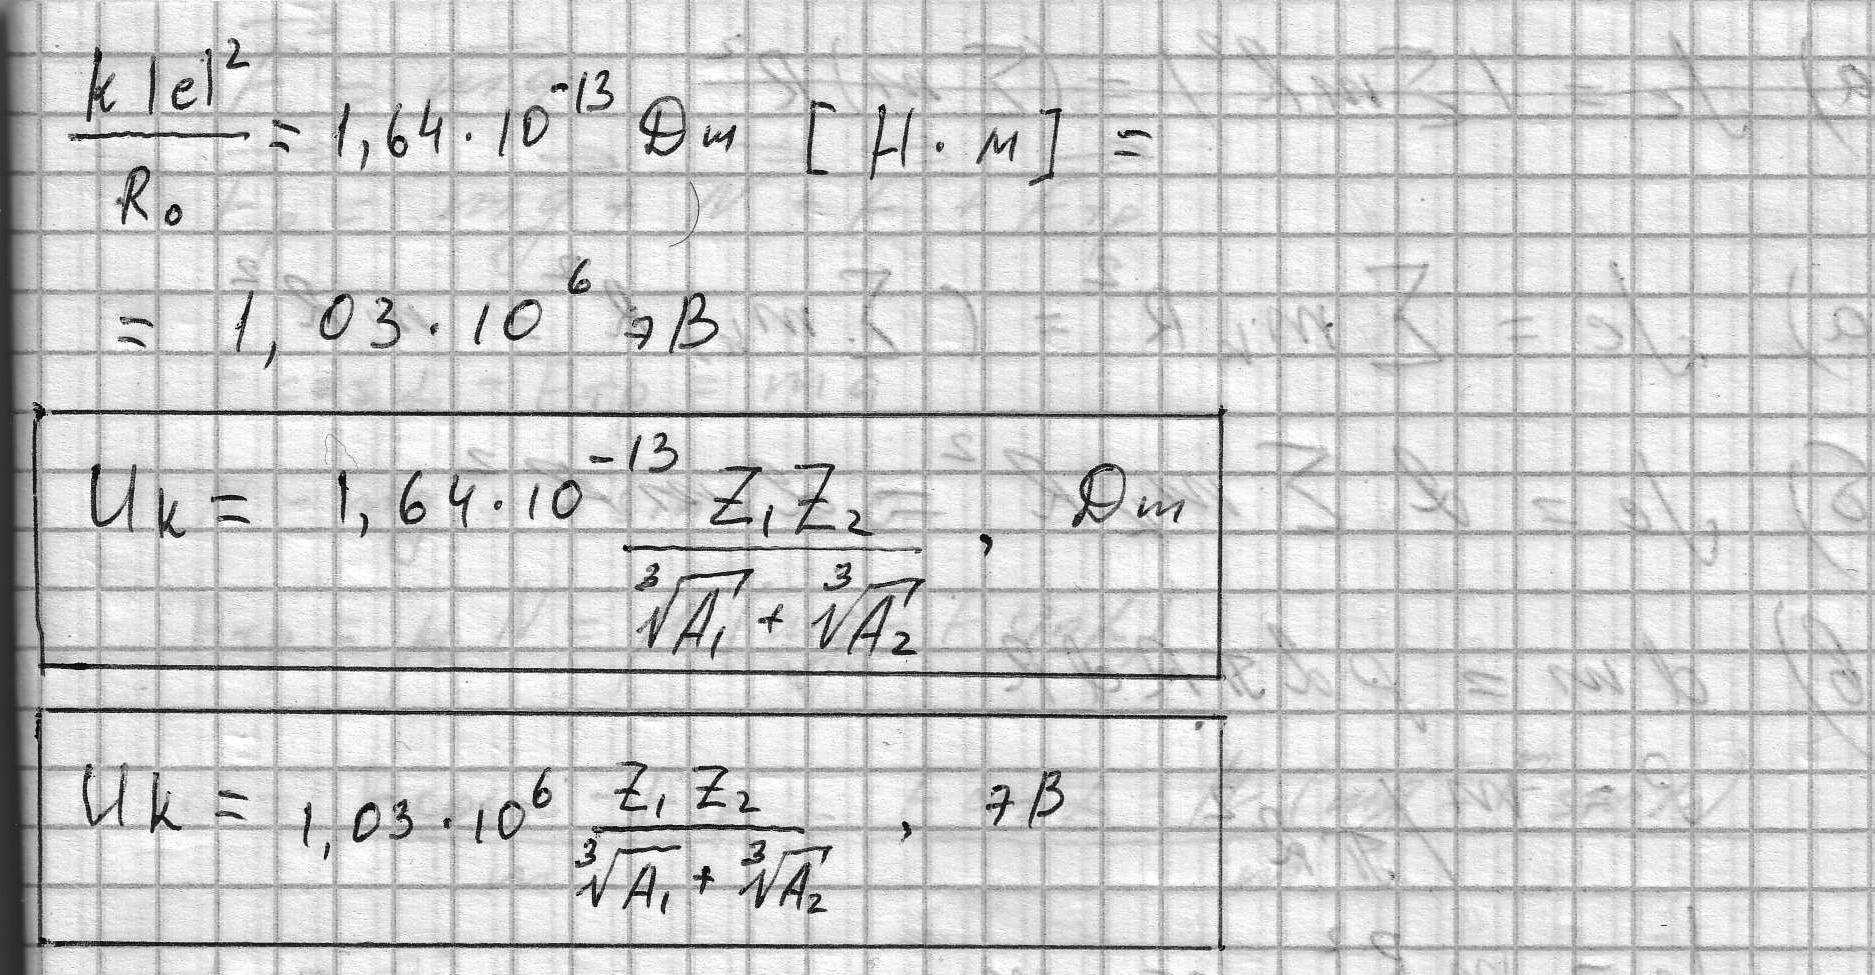 k |e|² / R₀ = 1,64 · 10⁻¹³ Дж [Н · м] =
= 1,03 · 10⁶ эВ
Uk = 1,64 · 10⁻¹³ Z₁Z₂ / (∛A₁ + ∛A₂) , Дж
Uk = 1,03 · 10⁶ Z₁Z₂ / (∛A₁ + ∛A₂) , эВ